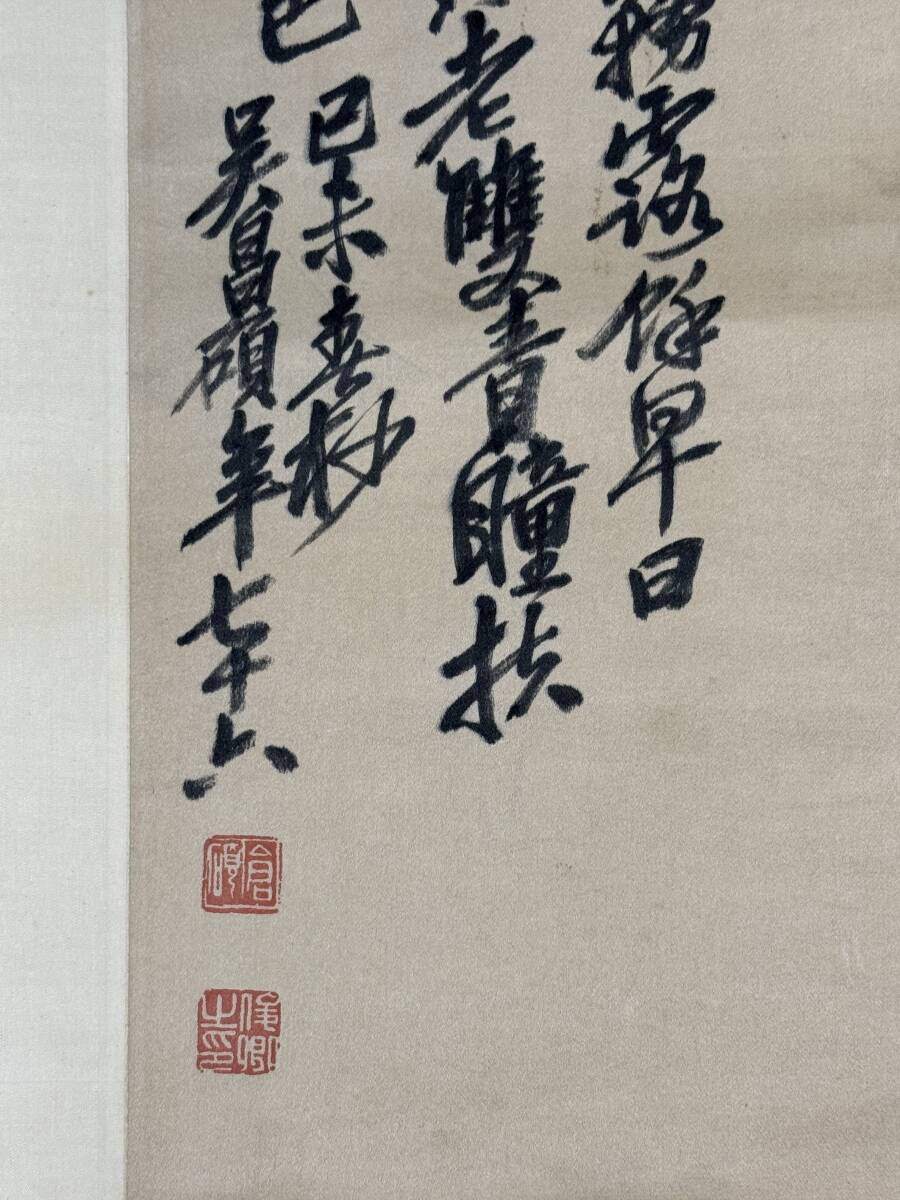 露餘早日
老雙青瞳扶
色
己未春杪
吳昌碩年七十六
倉碩
俊卿之印